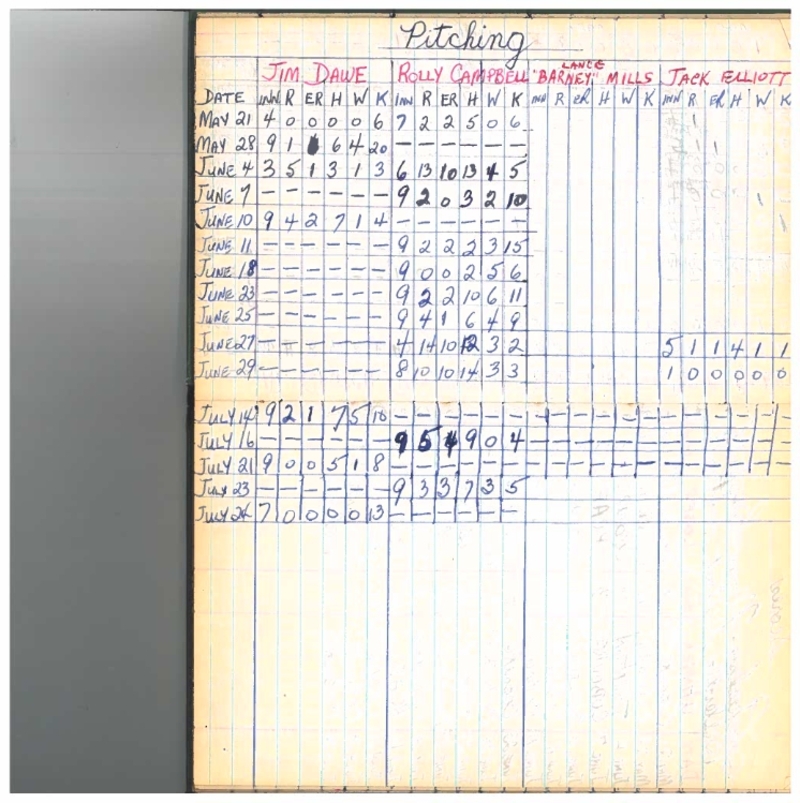 Pitching
JIM DAWE ROLLY CAMPBELL LANCE "BARNEY" MILLS JACK ELLIOTT
DATE INN R ER H W K INN R ER H W K INN R ER H W K INN R ER H W K
MAY 21 4 0 0 0 0 6 7 2 2 5 0 6
MAY 28 9 1 6 4 20 – – – – – –
JUNE 4 3 5 1 3 1 3 6 13 10 13 4 5
JUNE 7 – – – – – – 9 2 0 3 2 10
JUNE 10 9 4 2 7 1 4 – – – – – –
JUNE 11 – – – – – – 9 2 2 2 3 15
JUNE 18 – – – – – – 9 0 0 2 5 6
JUNE 23 – – – – – – 9 2 2 10 6 11
JUNE 25 – – – – – – 9 4 1 6 4 9
JUNE 27 – – – – – – 4 14 10 12 3 2 5 1 1 4 1 1
JUNE 29 – – – – – – 8 10 10 14 3 3 1 0 0 0 0 0
JULY 14 9 2 1 7 5 10 – – – – – – – – – – – – – – – – – –
JULY 16 – – – – – – 9 5 4 9 0 4 – – – – – – – – – – – –
JULY 21 9 0 0 5 1 8 – – – – – – – – – – – – – – – – – –
JULY 23 – – – – – – 9 3 3 7 3 5
JULY 7 0 0 0 0 13 – – – – – –